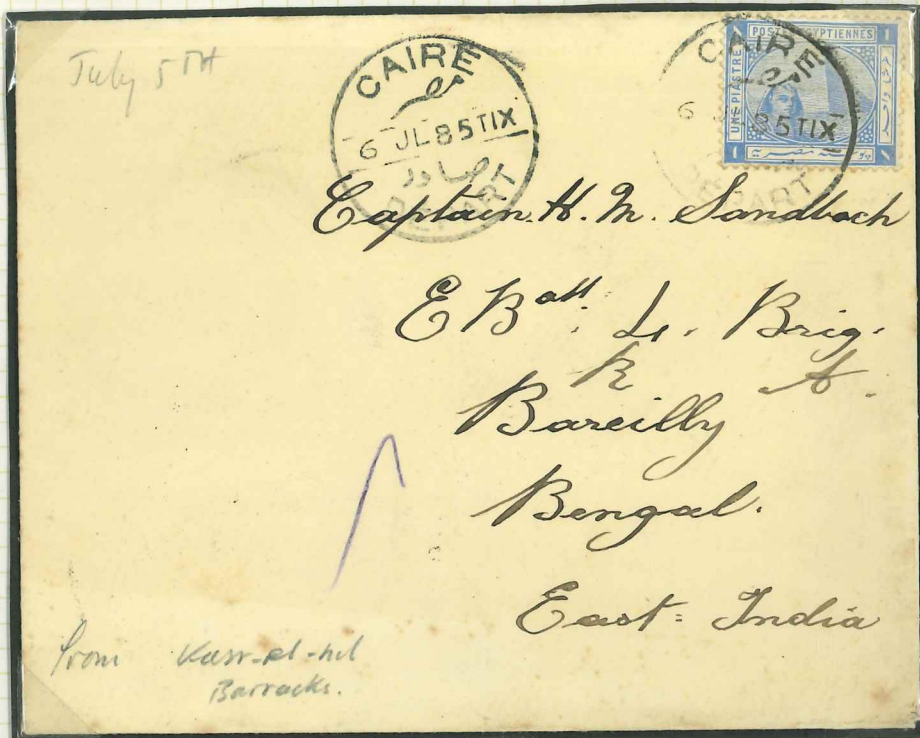 July 5TH
CAIRE
مصر
6 JL 85 TIX
صادر
DEPART
CAIRE
مصر
6 JL 85 TIX
DEPART
POSTES EGYPTIENNES
UNE PIASTRE
بوستة مصرية
Captain. H. M. Sandbach
E Batt. Lr. Brig.
R A.
Bareilly
Bengal.
East = India
From Kasr-el-nil
Barracks.